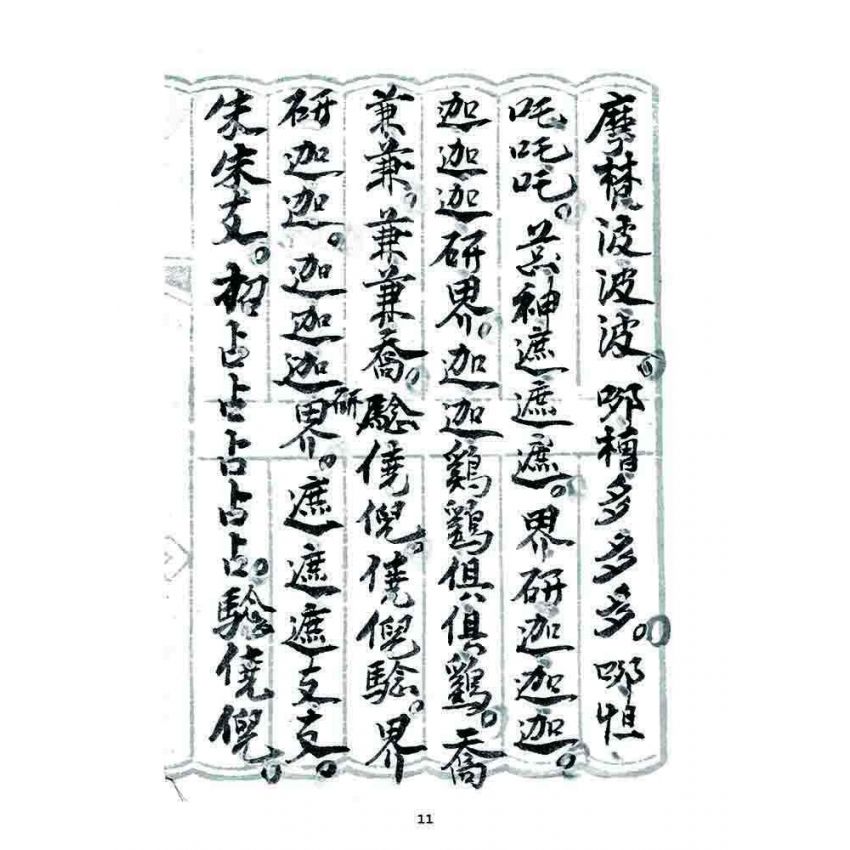 摩梵波波波。哪楕多多多。哪怛
吒吒吒。莎神遮遮遮。界研迦迦迦。
迦迦迦研界。迦迦鷄鷄俱俱鷄。喬
兼兼。兼兼喬。驗僥倪。僥倪驗。界
研
研迦迦。迦迦迦界。遮遮遮支支。
朱朱支。招占占占占占。驗僥倪。
11